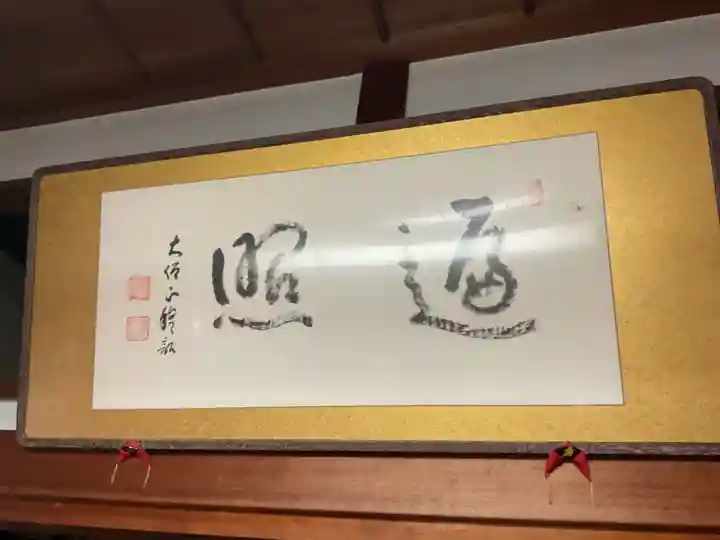 遍照
大僧正